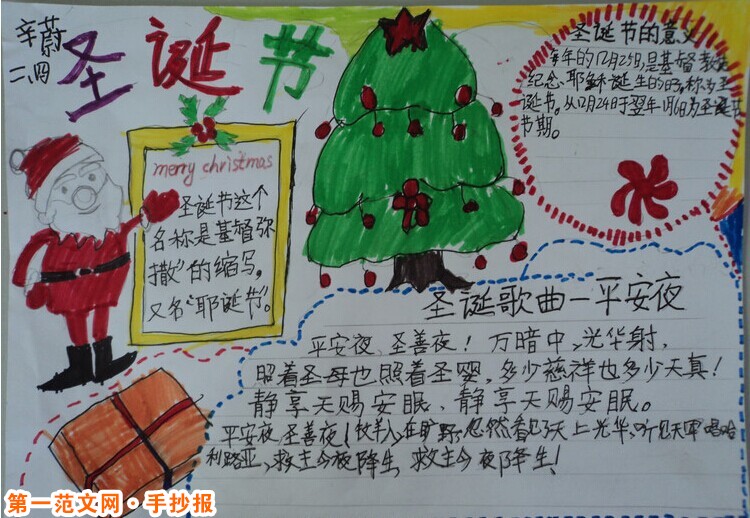 辛蔚
二、四
圣诞节
merry christmas
圣诞节这个
名称是基督弥
撒”的缩写，
又名“耶诞节”。
圣诞节的意义
每年的12月25日，是基督教徒
纪念、耶稣诞生的日，称为圣
诞节。从12月24日于翌年1月6日为圣诞节
节期。
圣诞歌曲—平安夜
平安夜、圣善夜！万暗中，光华射，
照着圣母也照着圣婴，多少慈祥也多少天真！
静享天赐安眠、静享天赐安眠。
平安夜圣善夜！牧羊人，在旷野，忽然看见了天上光华，听见天军唱哈
利路亚，救主今夜降生 救主今夜降生！
第一范文网·手抄报